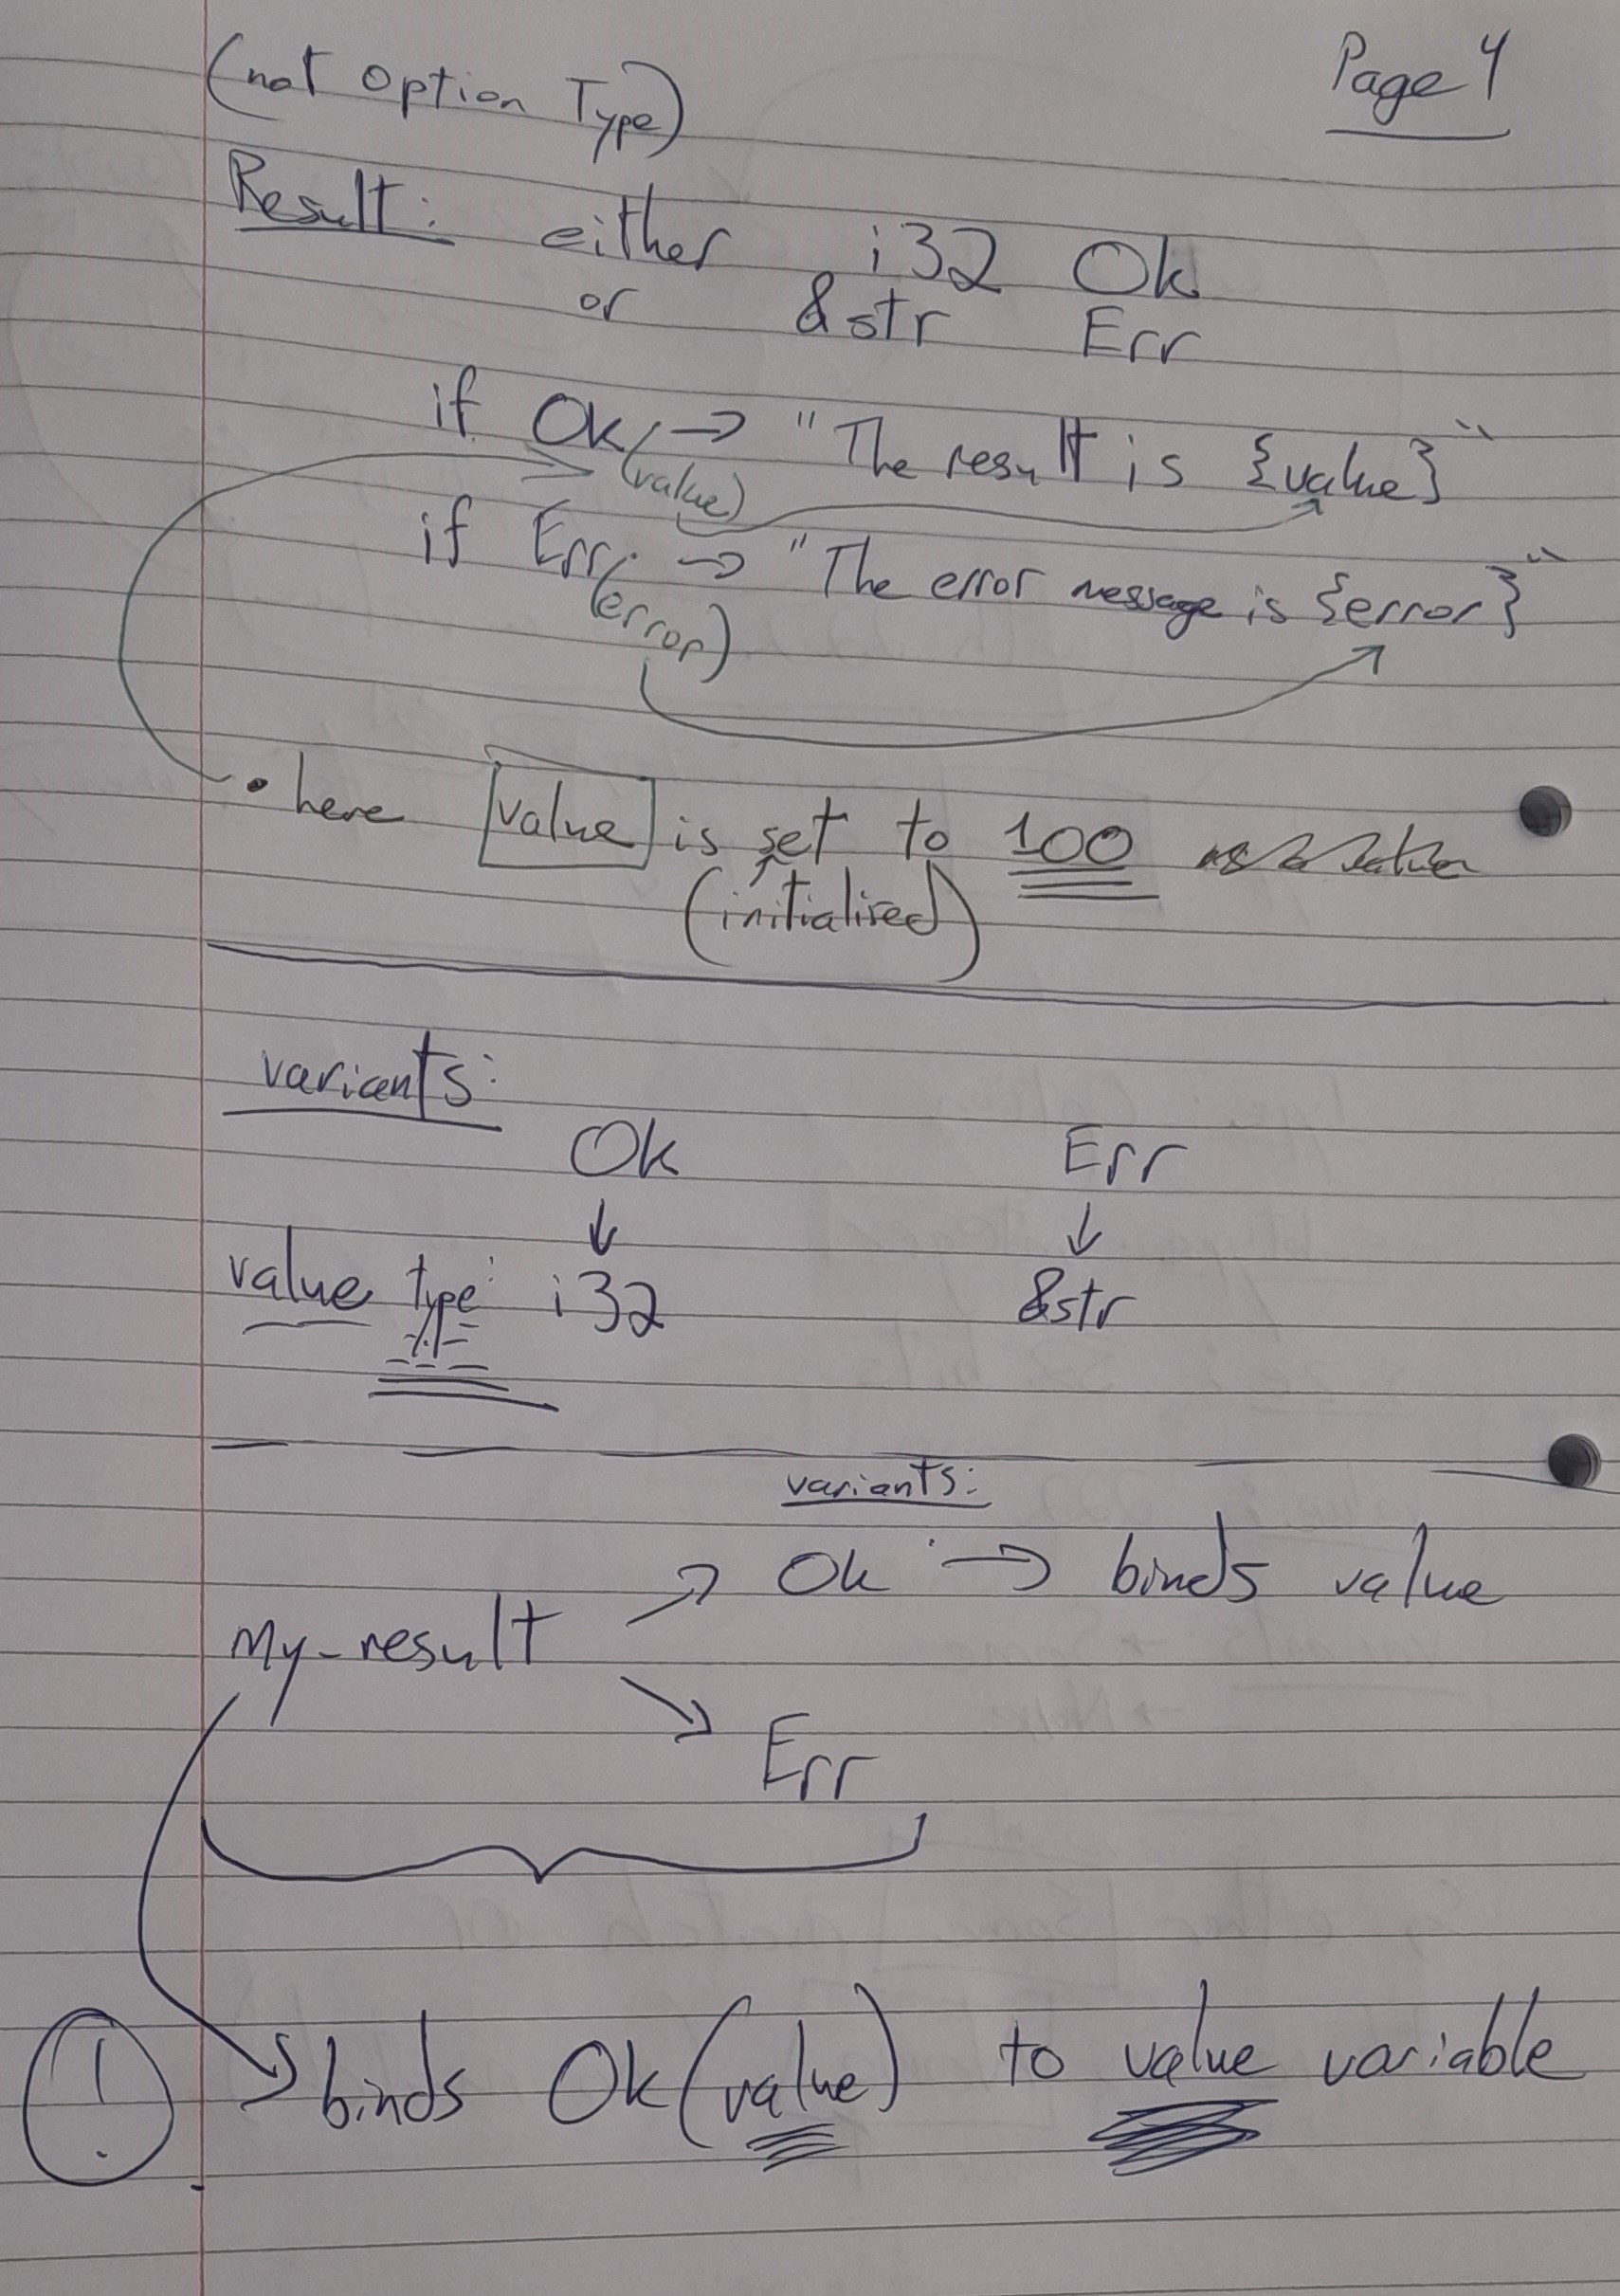 Page 4
(not Option Type)
Result: either i32 Ok
or &str Err
if Ok → "The result is {value}"
(value)
if Err → "The error message is {error}"
(error)
• here value is set to 100
(initialised)
variants:
Ok Err
↓ ↓
value type: i32 &str
variants:
Ok → binds value
my_result
Err
! binds Ok (value) to value variable